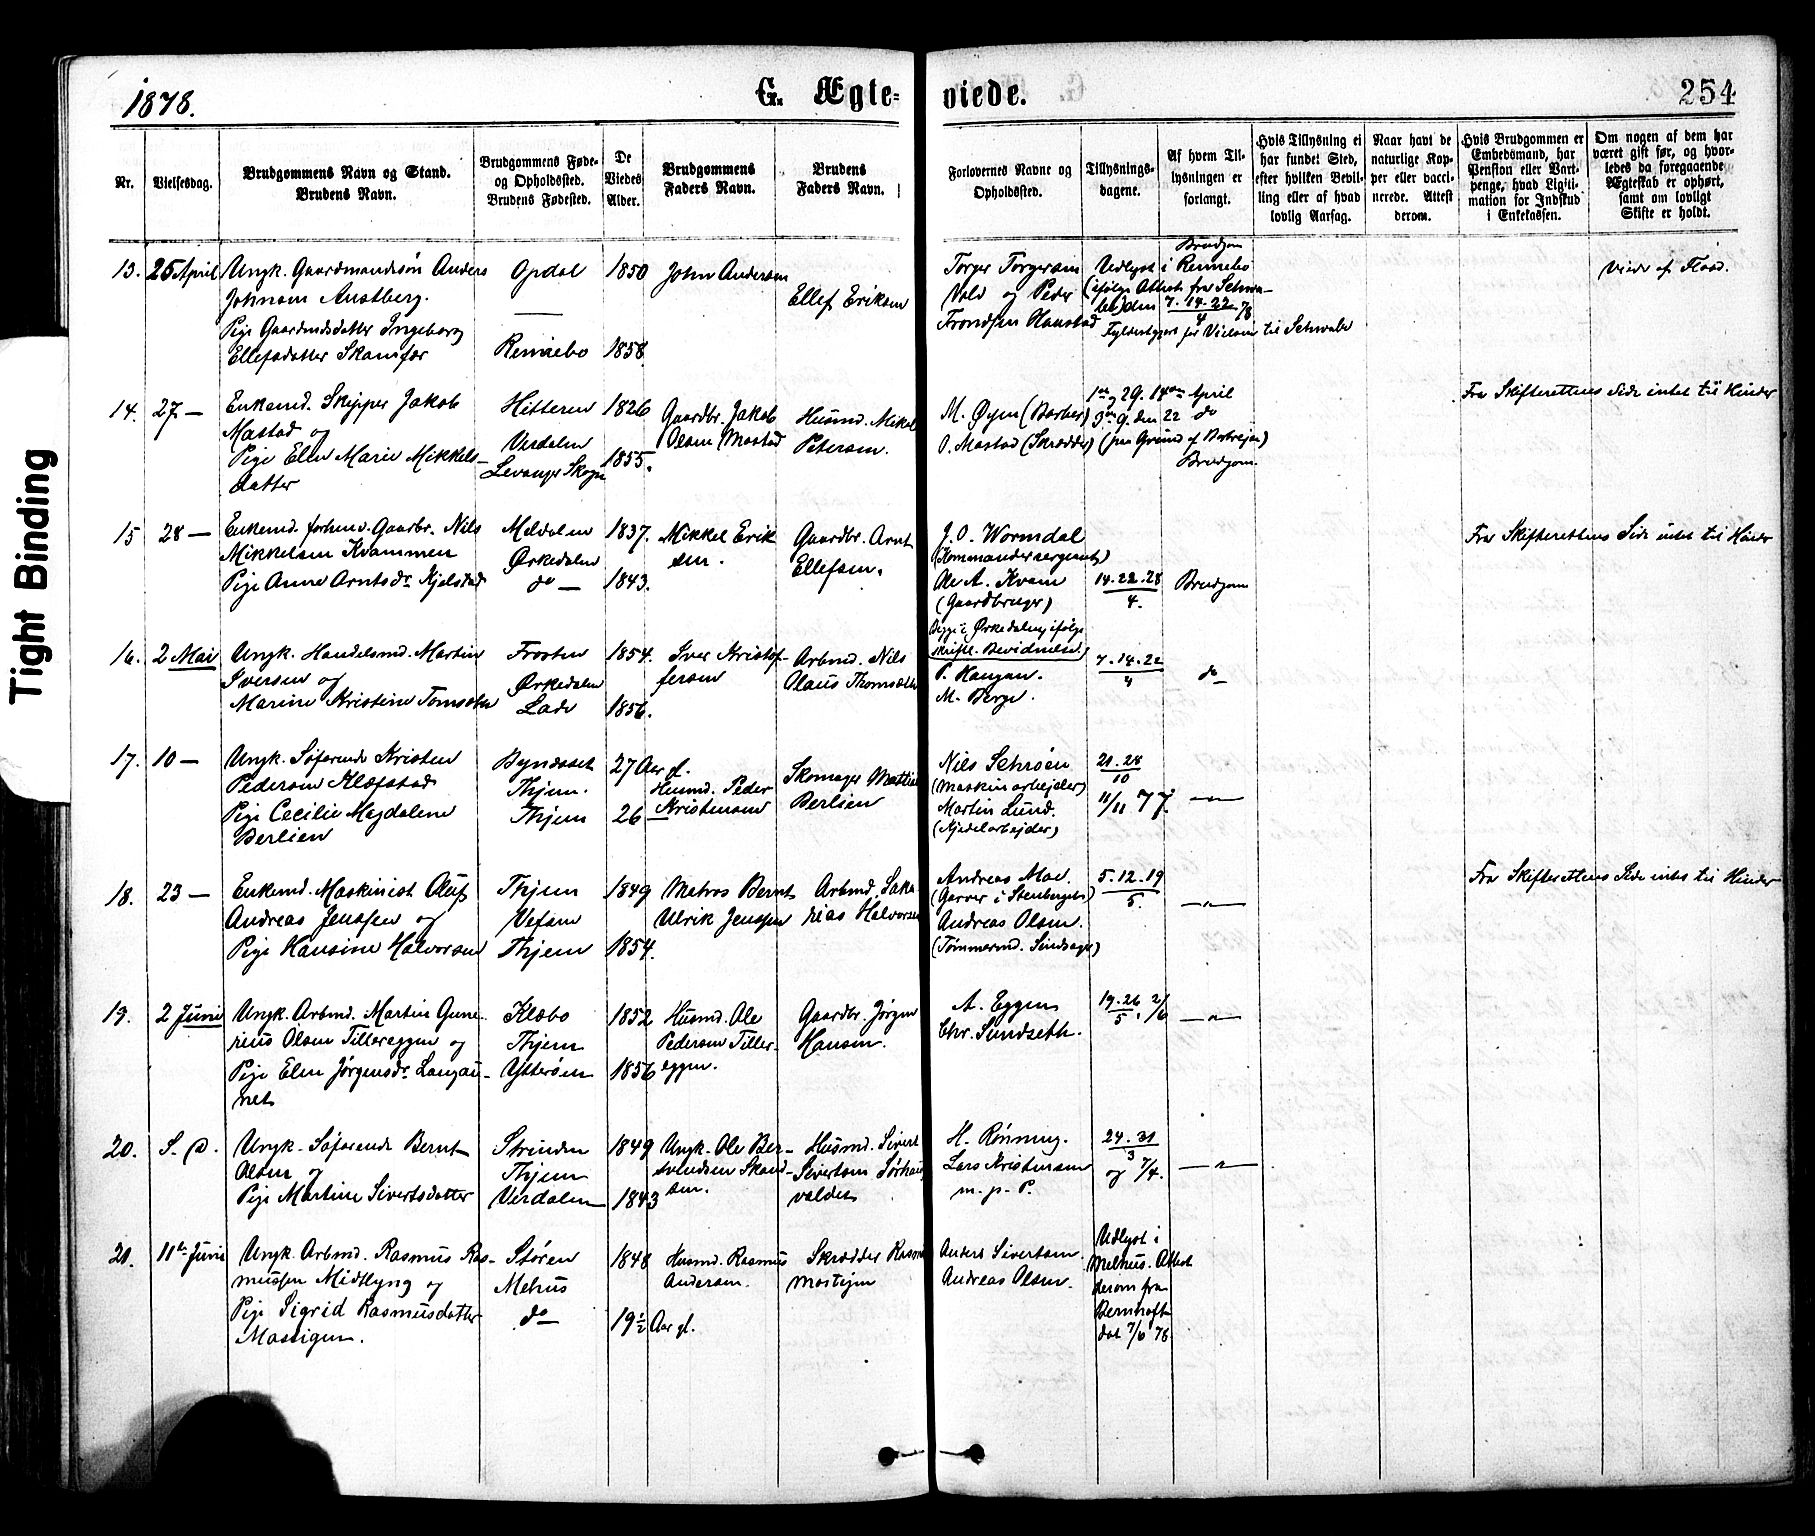 Tight Binding
1878.
G. Ægte-
viede.
254
Nr.
Vielsesdag.
Brudgommens Navn og Stand.
Brudens Navn.
BrudgommensFøde-
og Opholdssted.
Brudens Fødested.
De
Viedes
Alder.
Brudgommens
Faders Navn.
Brudens
Faders Navn.
Forlovernes Navne og
Opholdssted.
Tillysnings-
dagene.
Af hvem Til-
lysningen er
forlangt.
Hvis Tillysning ei
har fundet Sted,
efter hvilken Bevil-
ling eller af hvad
lovlig Aarsag.
Naar havt de
naturlige Kop-
per eller vacci-
nerede. Attest
derom.
Hvis Brudgommen er
Embedsmand, har
Pension eller Vart-
penge, hvad Ligiti-
mation for Indskud
i Enkekassen.
Om nogen af dem har
været gift før, og hvor-
ledes da foregaaende
Ægteskab er ophørt,
samt om lovligt
Skifte er holdt.
13. 25 April
Ungk. Gaardmandssøn Anders
Johnsen Austberg.
Pige Gaardmdsdatter Ingeborg
Ellefsdatter Skamfær
Opdal
Rennebo
1850
1858.
John Andersen
Ellef Eriksen
Torger Torgersen
Vold og Peder
Trondsen Haustad
Brudgom
Udlyst i Rennebo
(ifølge Attest fra Schwa-
be) den 7.14.22/4 78
Viede af Flood.
14. 27 —
Enkemd. Skipper Jakob
Mastad og
Pige Elen Marie Mikkels-
datter
Hitteren
Verdalen
Levanger Skogn
1826
1855.
Gaardbr. Jakob
Olsen Mastad
Husmd. Mikal
Petersen.
M. Øyen (Barber)
O. Mastad (Skrædder)
April
do
Brudgom.
Fra Skifterettens Side intet til Hinder
15 28 —
Enkemd. forhenv. Gaardbr. Nils
Mikkelsen Kvammen
Pige Anne Arntsdr. Kjelstad
Meldalen
Ørkedalen
do —
1837.
1843.
Mikkel Erik
sen.
Gaardbr. Arnt
Ellefsen.
J. O. Wormdal
(Kommandersergeant)
Ole A. Kvam
(Gaardbruger)
Begge i Ørkedalen, ifølge
skriftl. Bevidnelse
14.22.28
4.
Brudgom
Fra Skifterettens Side intet til Hinder
16. 2 Mai
Ungk. Handelsmd. Martin
Iversen og
Marine Kristine Tomsdtr
Frosten
Ørkedalen
Lade
1854.
1856.
Iver Kristof-
fersen
Arbmd. Nils
Olaus Thomsdtr
P. Haugan.
M. Berge.
7.14.22
4
do —
17. 10 —
Ungk. Søfarende Kristen
Pedersen Klæfstad
Pige Cecilie Magdalene
Berlien
Byneset
Thjem.
Thjem
27 Aar gl.
26 —
Husmd. Peder
Kristensen
Skomager Mattis
Berlien
Nils Schrøen
(Maskinarbejder)
Martin Lund.
(Kjedelarbejder)
21.28
10
11/11 77.
—"—
18. 23 —
Enkemd. Maskinist Oluf
Andreas Jenssen og
Pige Hansine Halvorsen
Thjem
Vefsen
Thjem
1849
1854.
Matros Bernt
Ulrik Jenssen
Arbmd. Saka-
rias Halvorsen
Andreas Moe.
(Garver i Stenberget)
Andreas Olsen.
(Tømmermd.
5.12.19
5.
—"—
Fra Skifterettens Side intet til Hinder
19. 2 Juni
Ungk. Arbmd. Martin Gune-
rius Olsen Tillereggen og
Pige Elen Jørgensdr. Langau-
net
Klæbo
Thjem
Ytterøen
1852
1856
Husmd. Ole
Pedersen Tiller-
eggen.
Gaardbr. Jørgen
Hansen.
A. Eggen
Chr. Sundseth.
19.26
5. 2/6
—"—
20. S. D.
Ungk. Søfarende Bernt
Olsen og
Pige Martine Sivertsdatter
Strinden
Thjem
Verdalen
1849
1843
Ungk. Ole Ber-
Husmd. Sivert
Sivertsen Sørhau
valdet
H. Rønning.
Lars Kristensen
m. p. P.
24.31
3
og 7/4.
—"—
21. 11te Juni
Ungk. Arbmd. Rasmus Ras-
mussen Midtlyng og
Pige Sigrid Rasmusdatter
Mostigen.
Støren
Melhus
do —
1848
19 1/2 Aar gl.
Husmd. Rasmus
Andersen.
Skrædder Rasm
Mostigen
Anders Sivertsen.
Andreas Olsen.
Udlyst i
Melhus. Attest
derom fra
Bernhoft
dat 7/6 78